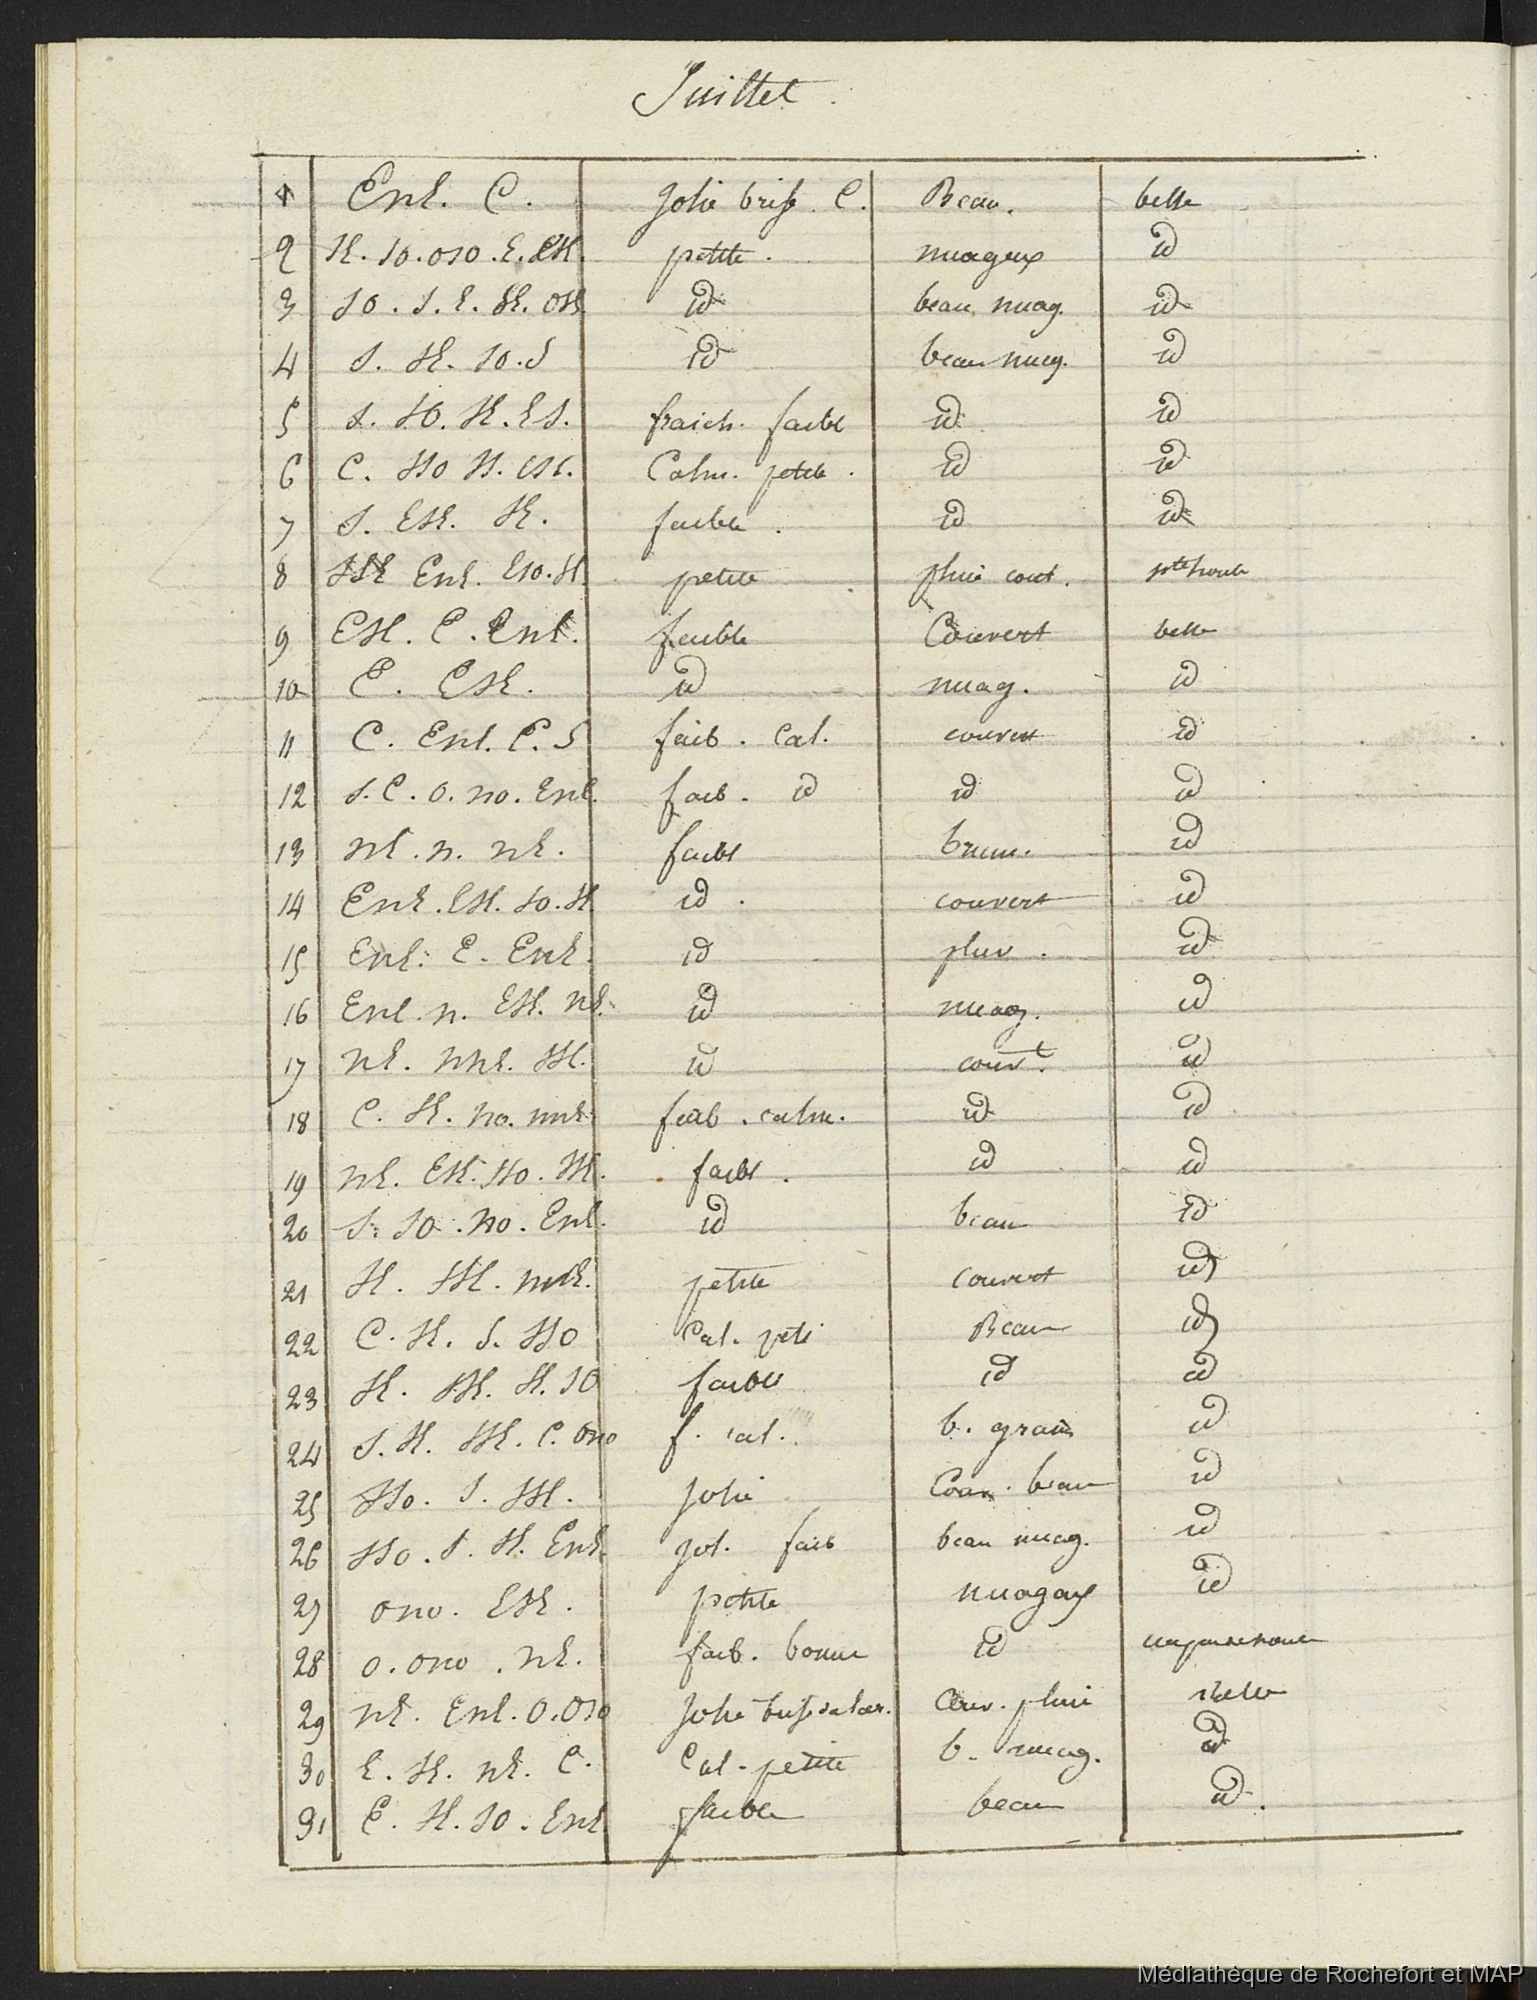 Juillet.
1 Ene. C. Jolie brise. C. Beau. belle
2 SE. SO. OSO. E. ESE. petite. nuageux id
3 SO. S. E. SE. OSE id beau nuag. id
4 S. SE. SO. S id beau nuag. id
5 S. SO. SE. ES. fraich. faible id id
6 C. SSO SE. ESE. Calm. petite. id id
7 S. ESE. SE. faible. id id
8 SSE Ene. ESO. SE. petite pluie cout. pte houle
9 ESE. E. Ene. faible Couvert belle
10 E. ESE. id nuag. id
11 C. Ene. E. S faib. Cal. couvert id
12 S. C. O. no. Ene. faib. id id id
13 ne. n. ne. faible brum. id
14 Ene. ESE. SO. SE. id. couvert id
15 Ene. E. Ene. id pluv. id
16 Ene. n. ESE. ne. id nuag. id
17 ne. nne. SSE. id couvt. id
18 C. SE. no. nne. faib. calm. id id
19 ne. ESE. SSO. SSE. faible. id id
20 S. SO. no. Ene. id beau id
21 SE. SSE. nne. petite couvert id
22 C. SE. S. SSO Cal. peti Beau id
23 SE. SSE. SE. SO faible id id
24 S. SE. SSE. C. Ono f. cal. b. grains id
25 SSo. S. SSE. jolie Couv. beau id
26 SSo. S. SE. Ene. jol. faib beau nuag. id
27 ono. ESE. petite nuageux id
28 o. ono. ne. faib. bonne id un peu de houle
29 ne. Ene. O. OSO Jolie brise calm. Couv. pluie belle
30 E. SE. ne. C. Cal. petite b. nuag. id
31 E. SE. SO. Ene faible beau id.
Médiathèque de Rochefort et MAP